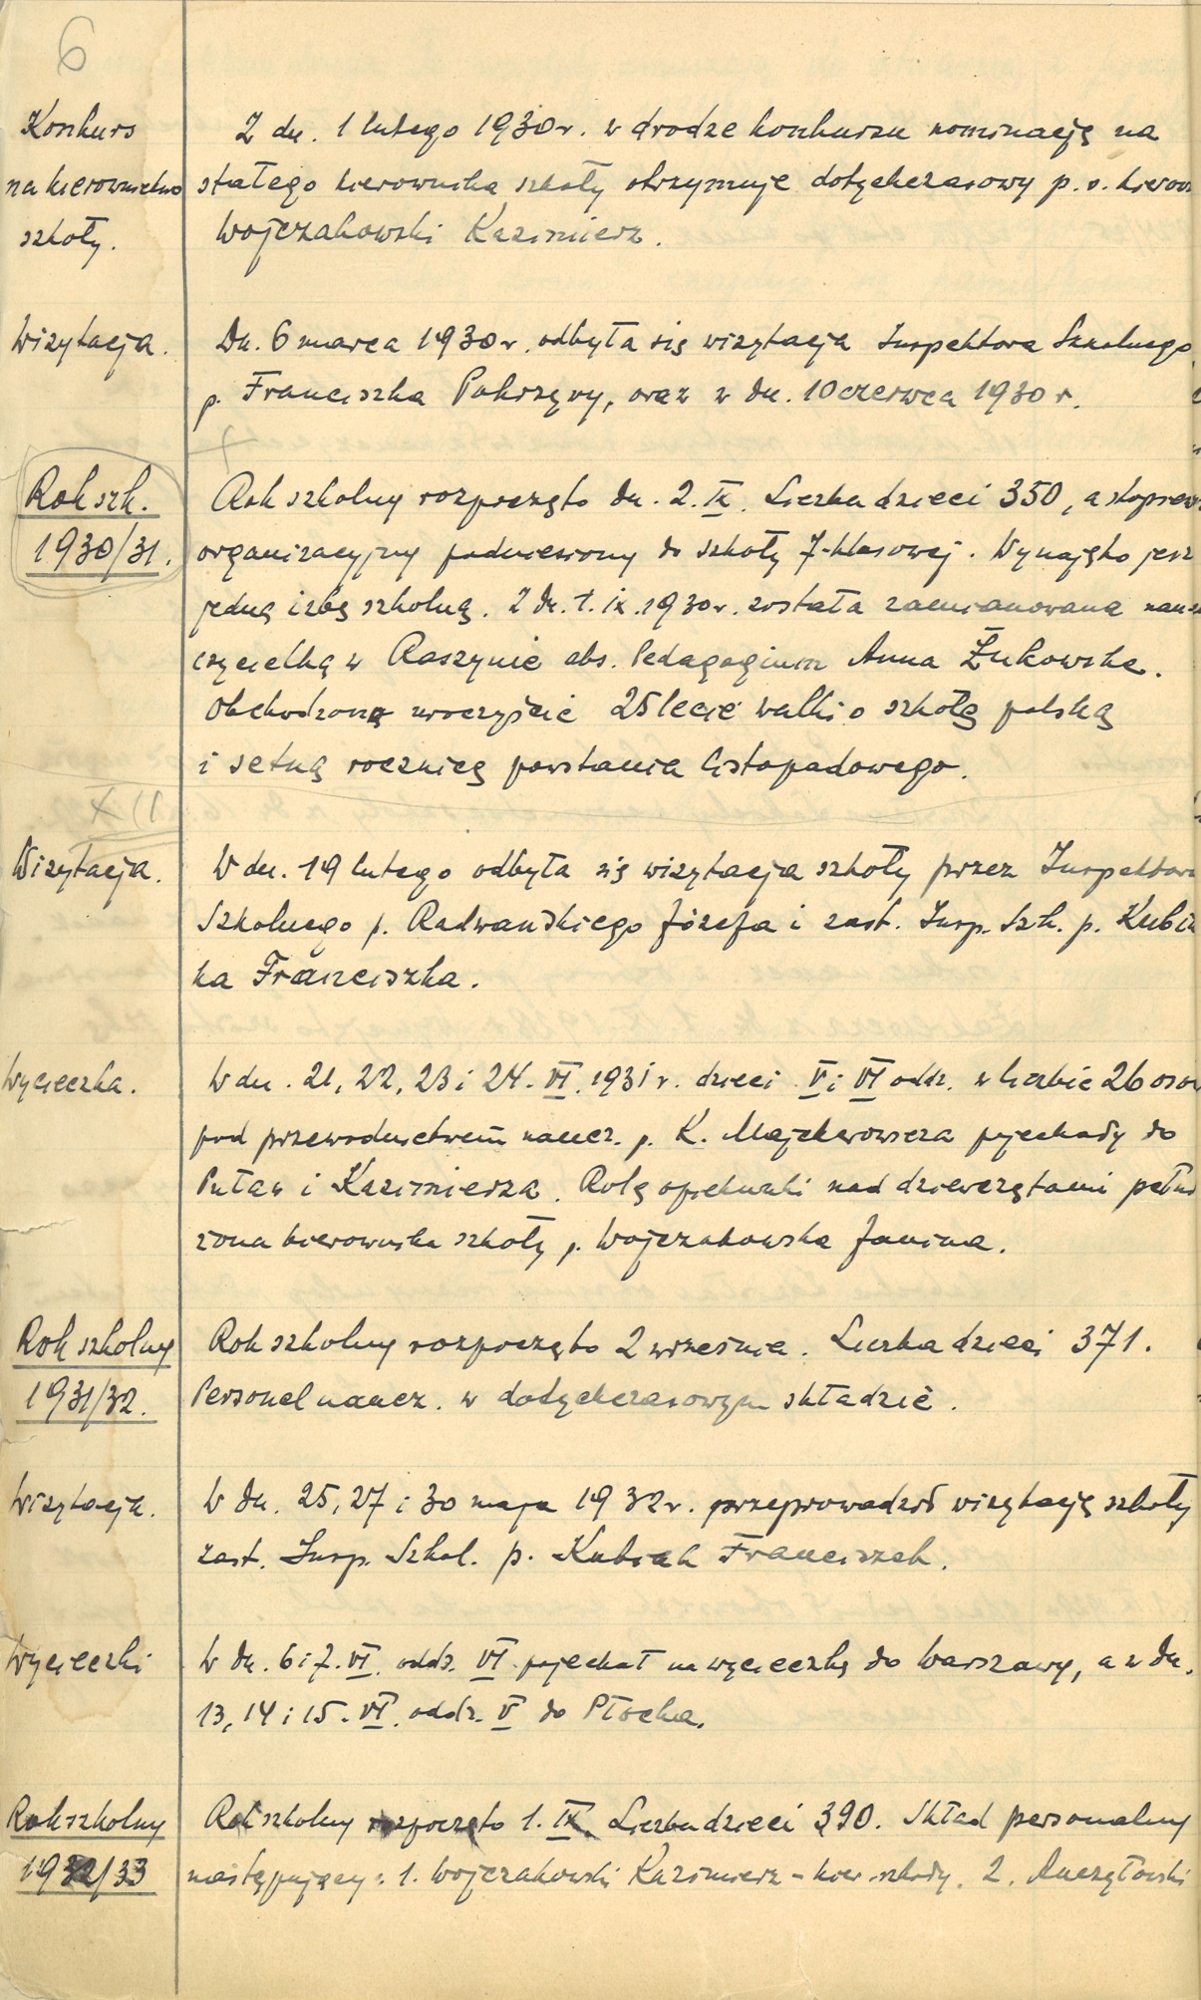 6
Konkurs
na kierownictwo
szkoły.
Z dn. 1 lutego 1930 r. w drodze konkursu nominację na
stałego kierownika szkoły otrzymuje dotychczasowy p. o. kierow
Wojczakowski Kazimierz.
Wizytacja.
Dn. 6 marca 1930 r. odbyła się wizytacja Inspektora Szkolnego
p. Franciszka Pokrzywy, oraz w dn. 10 czerwca 1930 r.
Rok szk.
1930/31.
Rok szkolny rozpoczęto dn. 2. IX. Liczba dzieci 350, a stopień
organizacyjny podniesiony do szkoły 7-klasowej. Wynajęto jesz
jedną izbę szkolną. Z dn. 1. IX. 1930 r. została zamianowana nau
czycielką w Raszynie abs. Pedagogium Anna Żukowska.
Obchodzono uroczyście 25 lecie walki o szkołę polską
i setną rocznicę powstania listopadowego.
XII
Wizytacja.
W dn. 19 lutego odbyła się wizytacja szkoły przez Inspektora
Szkolnego p. Radwańskiego Józefa i zast. Insp. Szk. p. Kubia
ka Franciszka.
Wycieczka.
W dn. 21, 22, 23 i 24. VI. 1931 r. dzieci V i VI oddz. w liczbie 26 osó
pod przewodnictwem naucz. p. K. pojechały do
Puław i Kazimierza. Rolę opiekunki nad dziewczętami pełni
żona kierownika szkoły p. Wojczakowska Janina.
Rok szkolny
1931/32.
Rok szkolny rozpoczęto 2 września. Liczba dzieci 371.
Personel naucz. w dotychczasowym składzie.
Wizytacja.
W dn. 25, 27 i 30 maja 1932 r. przeprowadził wizytację szkoły
zast. Insp. Szkol. p. Kubiak Franciszek.
Wycieczki
W dn. 6 i 7. VI. oddz. VI pojechał na wycieczkę do Warszawy, a w dn.
13, 14 i 15. VI. oddz. V do Płocka.
Rok szkolny
1932/33
Rok szkolny rozpoczęto 1. IX. Liczba dzieci 390. Skład personalny
następujący: 1. Wojczakowski Kazimierz - kier. szkoły, 2.